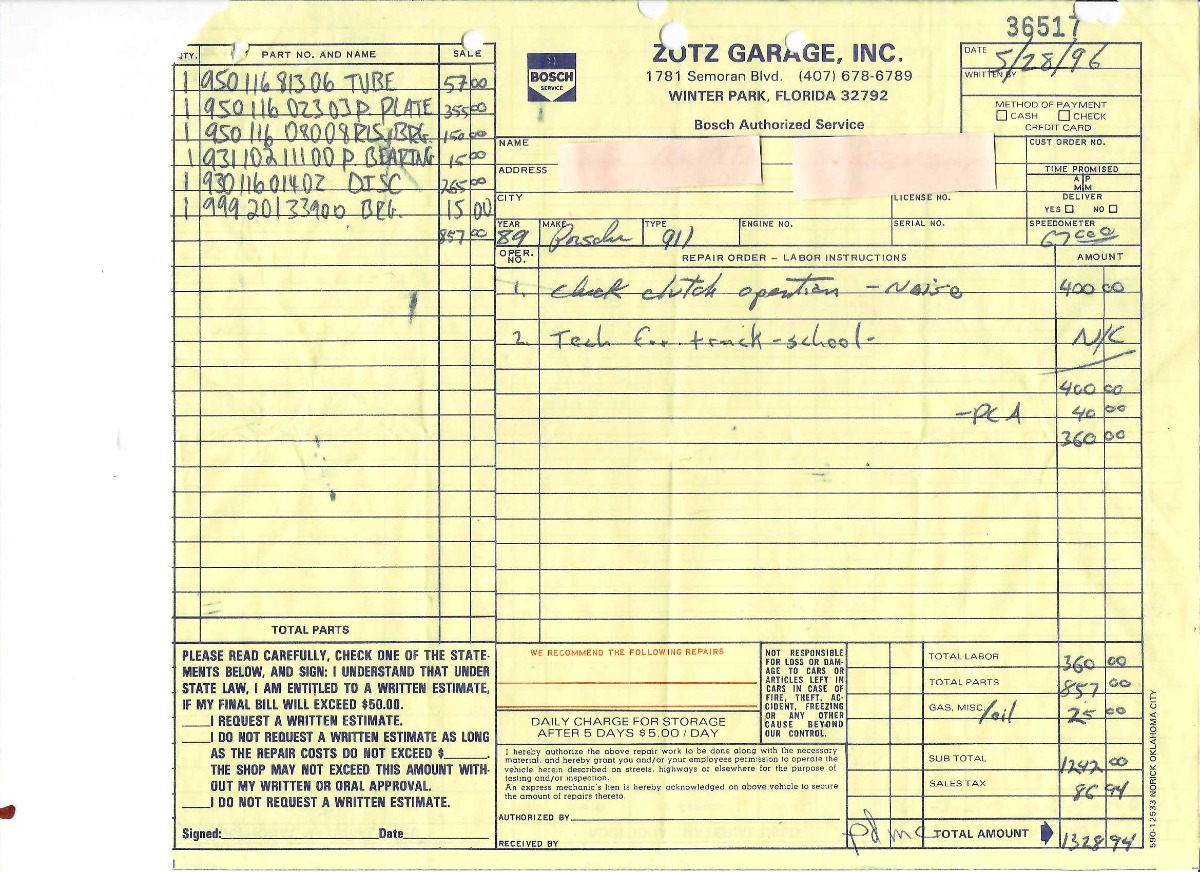 36517
ZOTZ GARAGE, INC.
1781 Semoran Blvd. (407) 678-6789
WINTER PARK, FLORIDA 32792
Bosch Authorized Service
BOSCH
SERVICE
DATE 5/28/96
WRITTEN BY
METHOD OF PAYMENT
CASH CHECK
CREDIT CARD
QTY. PART NO. AND NAME SALE
1 950 116 813 06 TUBE 57 00
1 950 116 023 03 P. PLATE 355 00
1 950 116 080 08 RLS. BRG. 150 00
1 931 102 111 00 P. BEARING 15 00
1 930 116 014 02 DISC 265 00
1 999 201 339 00 BRG. 15 00
857 00
TOTAL PARTS
NAME
CUST ORDER NO.
ADDRESS
TIME PROMISED
A P
M M
DELIVER
CITY
LICENSE NO.
YES NO
YEAR 89 MAKE Porsche TYPE 911 ENGINE NO. SERIAL NO. SPEEDOMETER 67000
OPER. NO. REPAIR ORDER – LABOR INSTRUCTIONS AMOUNT
1. check clutch operation - Noise 400 00
2. Tech for track - school - N/C
400 00
- PCA 40 00
360 00
PLEASE READ CAREFULLY, CHECK ONE OF THE STATE-
MENTS BELOW, AND SIGN: I UNDERSTAND THAT UNDER
STATE LAW, I AM ENTITLED TO A WRITTEN ESTIMATE,
IF MY FINAL BILL WILL EXCEED $50.00.
____I REQUEST A WRITTEN ESTIMATE.
____I DO NOT REQUEST A WRITTEN ESTIMATE AS LONG
AS THE REPAIR COSTS DO NOT EXCEED $______.
THE SHOP MAY NOT EXCEED THIS AMOUNT WITH-
OUT MY WRITTEN OR ORAL APPROVAL.
____I DO NOT REQUEST A WRITTEN ESTIMATE.
Signed:____ Date____
WE RECOMMEND THE FOLLOWING REPAIRS
DAILY CHARGE FOR STORAGE
AFTER 5 DAYS $5.00 / DAY
NOT RESPONSIBLE
FOR LOSS OR DAM-
AGE TO CARS OR
ARTICLES LEFT IN
CARS IN CASE OF
FIRE, THEFT, AC-
CIDENT, FREEZING
OR ANY OTHER
CAUSE BEYOND
OUR CONTROL.
I hereby authorize the above repair work to be done along with the necessary
material, and hereby grant you and/or your employees permission to operate the
vehicle herein described on streets, highways or elsewhere for the purpose of
testing and/or inspection.
An express mechanic's lien is hereby acknowledged on above vehicle to secure
the amount of repairs thereto.
AUTHORIZED BY
RECEIVED BY
TOTAL LABOR 360 00
TOTAL PARTS 857 00
GAS, MISC /oil 25 00
SUB TOTAL 1242 00
SALES TAX 86 94
pd mc TOTAL AMOUNT 1328 94
590-12533 NORICK OKLAHOMA CITY